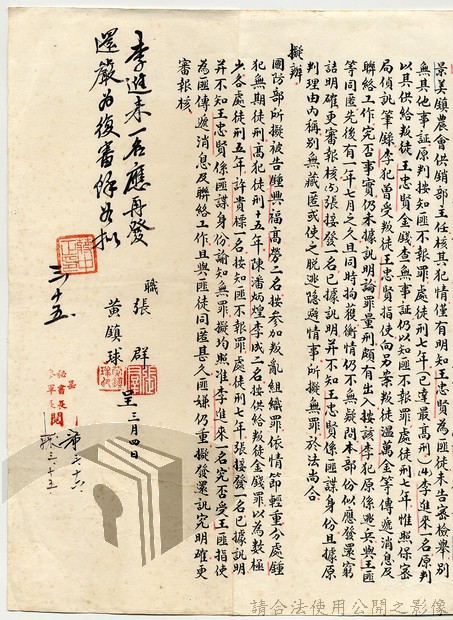 景美鎮農會供銷部主任核其犯情僅有明知王忠賢為匪徒未告密檢舉別
無其他事証原判按知匪不報罪處徒刑七年已達最高刑(4)李進來一名原判
以其供給叛徒王忠賢金錢查無事証仍以知匪不報罪處徒刑七年惟照保密
局偵訊筆錄李犯曾受叛徒王忠賢指使向另案叛徒溫萬金等傳遞消息及
聯絡工作完否事實仍未據訊明論罪量刑頗有出入按該李犯原係匪兵與王匪
等同匿先後有一年七月之久且同時拘獲衡情仍不無疑問本部份似應發還窮
詰明確更審報核(5)張接發一名已據訊明并不知王忠賢係匪諜身份且據原
判理由內稱別無藏匿或使之脫逃隱避情事所擬無罪於法尚合
擬辦
國防部所擬被告鍾興福高勞二名按參加叛亂組織罪依情節輕重分處鍾
犯無期徒刑高犯徒刑十五年陳潘炳煌李成二名按供給叛徒金錢罪以為數極
少各處徒刑五年許貴標一名按知匪不報罪處徒刑七年張接發一名已據訊明
并不知王忠賢係匪諜身份諭知無罪擬均照准李進來一名究否受王匪指使
為匪傳遞消息及聯絡工作且與匪徒同匿甚久匪嫌仍重擬發還訊究明確更
審報核
職 張 群
黃鎮球 呈 三月四日
李進來一名應再發
還嚴為復審餘如擬
三、十五
請合法使用公開之影像